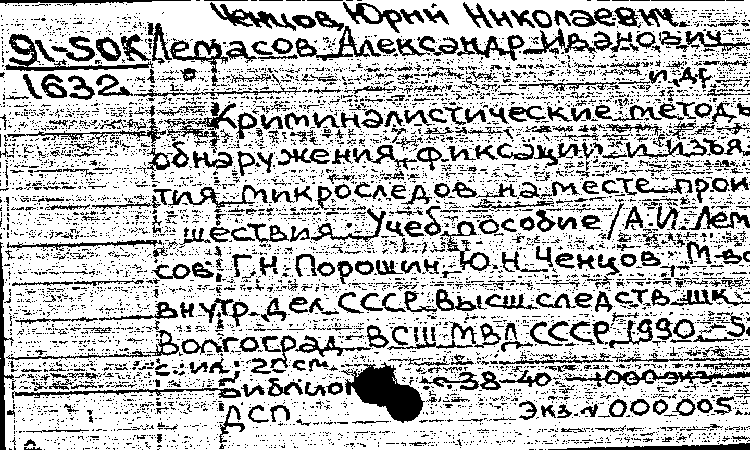 Ченцов, Юрий Николаевич
91-50К Лемасов Александр Иванович
1632. и др.
Криминалистические методы
обнаружения, фиксации и изъя
тия микроследов на месте прои
шествия: Учеб. пособие / А.И. Лем
сов, Г.Н. Порошин, Ю.Н. Ченцов; М-во
внутр. дел СССР. Высш. следств. шк.
Волгоград: ВСШ МВД СССР, 1990. - 5
с.: ил.; 20 см.
Библиог с. 38-40 1000 экз.
ДСП. Экз. N 000005.